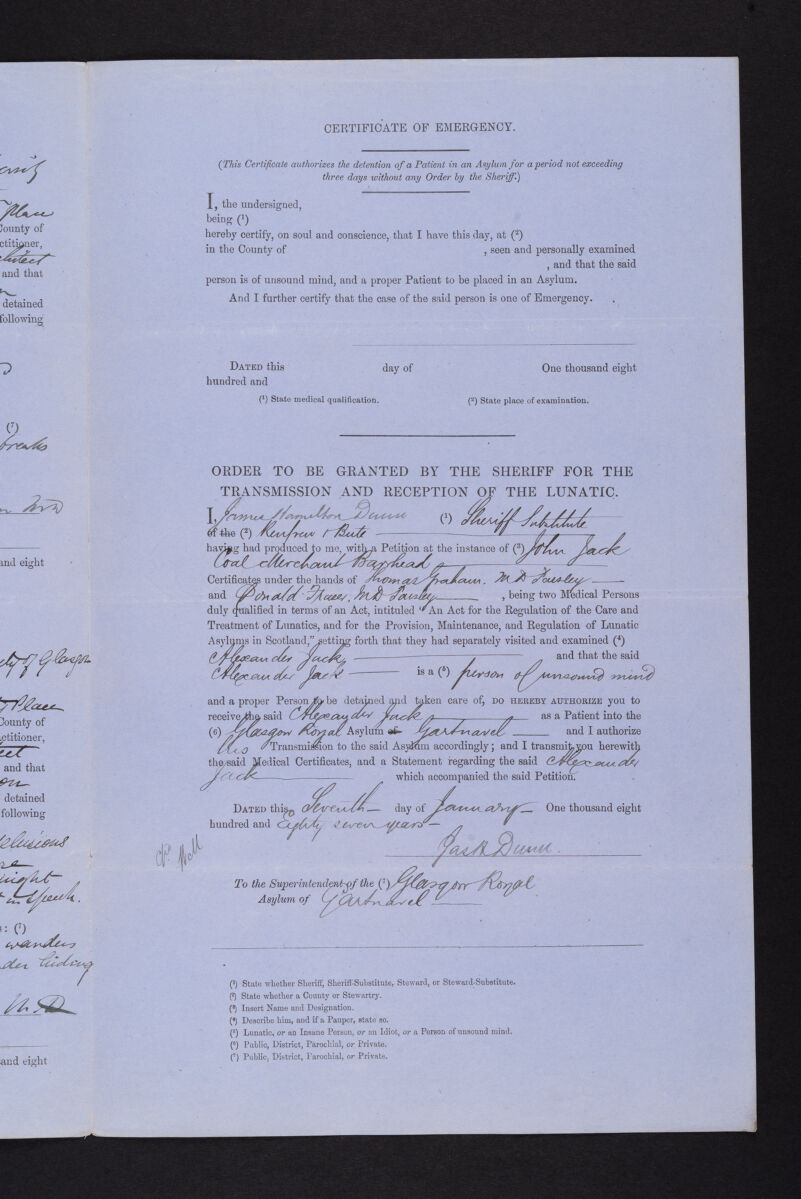 ersity
Place
County of
ctitioner,
chitect
and that
n
detained
following
(7)
breaks
and eight
City of Glasgow
Place
County of
ctitioner,
tect
and that
on
detained
following
delusions
re
night
in speech.
s: (7)
wanders
der hiding
M.D
and eight
CERTIFICATE OF EMERGENCY.
(This Certificate authorizes the detention of a Patient in an Asylum for a period not exceeding
three days without any Order by the Sheriff.)
I, the undersigned,
being (1)
hereby certify, on soul and conscience, that I have this day, at (2)
in the County of , seen and personally examined
, and that the said
person is of unsound mind, and a proper Patient to be placed in an Asylum.
And I further certify that the case of the said person is one of Emergency.
DATED this day of One thousand eight
hundred and
(1) State medical qualification. (2) State place of examination.
ORDER TO BE GRANTED BY THE SHERIFF FOR THE
TRANSMISSION AND RECEPTION OF THE LUNATIC.
I, James Hamilton Dunn (1) Sheriff Substitute
of the (2) Renfrew & Bute
having had produced to me, with a Petition at the instance of (3) John Jack
Coal Merchant Barrhead
Certificates under the hands of Thomas Graham. M.D Paisley
and Donald Fraser, M.D Paisley , being two Medical Persons
duly qualified in terms of an Act, intituled "An Act for the Regulation of the Care and
Treatment of Lunatics, and for the Provision, Maintenance, and Regulation of Lunatic
Asylums in Scotland," setting forth that they had separately visited and examined (4)
Alexander Jack, and that the said
Alexander Jack is a (5) person of unsound mind
and a proper Person to be detained and taken care of, DO HEREBY AUTHORIZE you to
receive the said Alexander Jack as a Patient into the
(6) Glasgow Royal Asylum of Gartnavel and I authorize
his Transmission to the said Asylum accordingly; and I transmit you herewith
the said Medical Certificates, and a Statement regarding the said Alexander
Jack which accompanied the said Petition.
DATED this Seventh day of January One thousand eight
hundred and Eighty seven years
Jas H Dunn.
To the Superintendent of the (7) Glasgow Royal
Asylum of Gartnavel
(1) State whether Sheriff, Sheriff-Substitute, Steward, or Steward-Substitute.
(2) State whether a County or Stewartry.
(3) Insert Name and Designation.
(4) Describe him, and if a Pauper, state so.
(5) Lunatic, or an Insane Person, or an Idiot, or a Person of unsound mind.
(6) Public, District, Parochial, or Private.
(7) Public, District, Parochial, or Private.